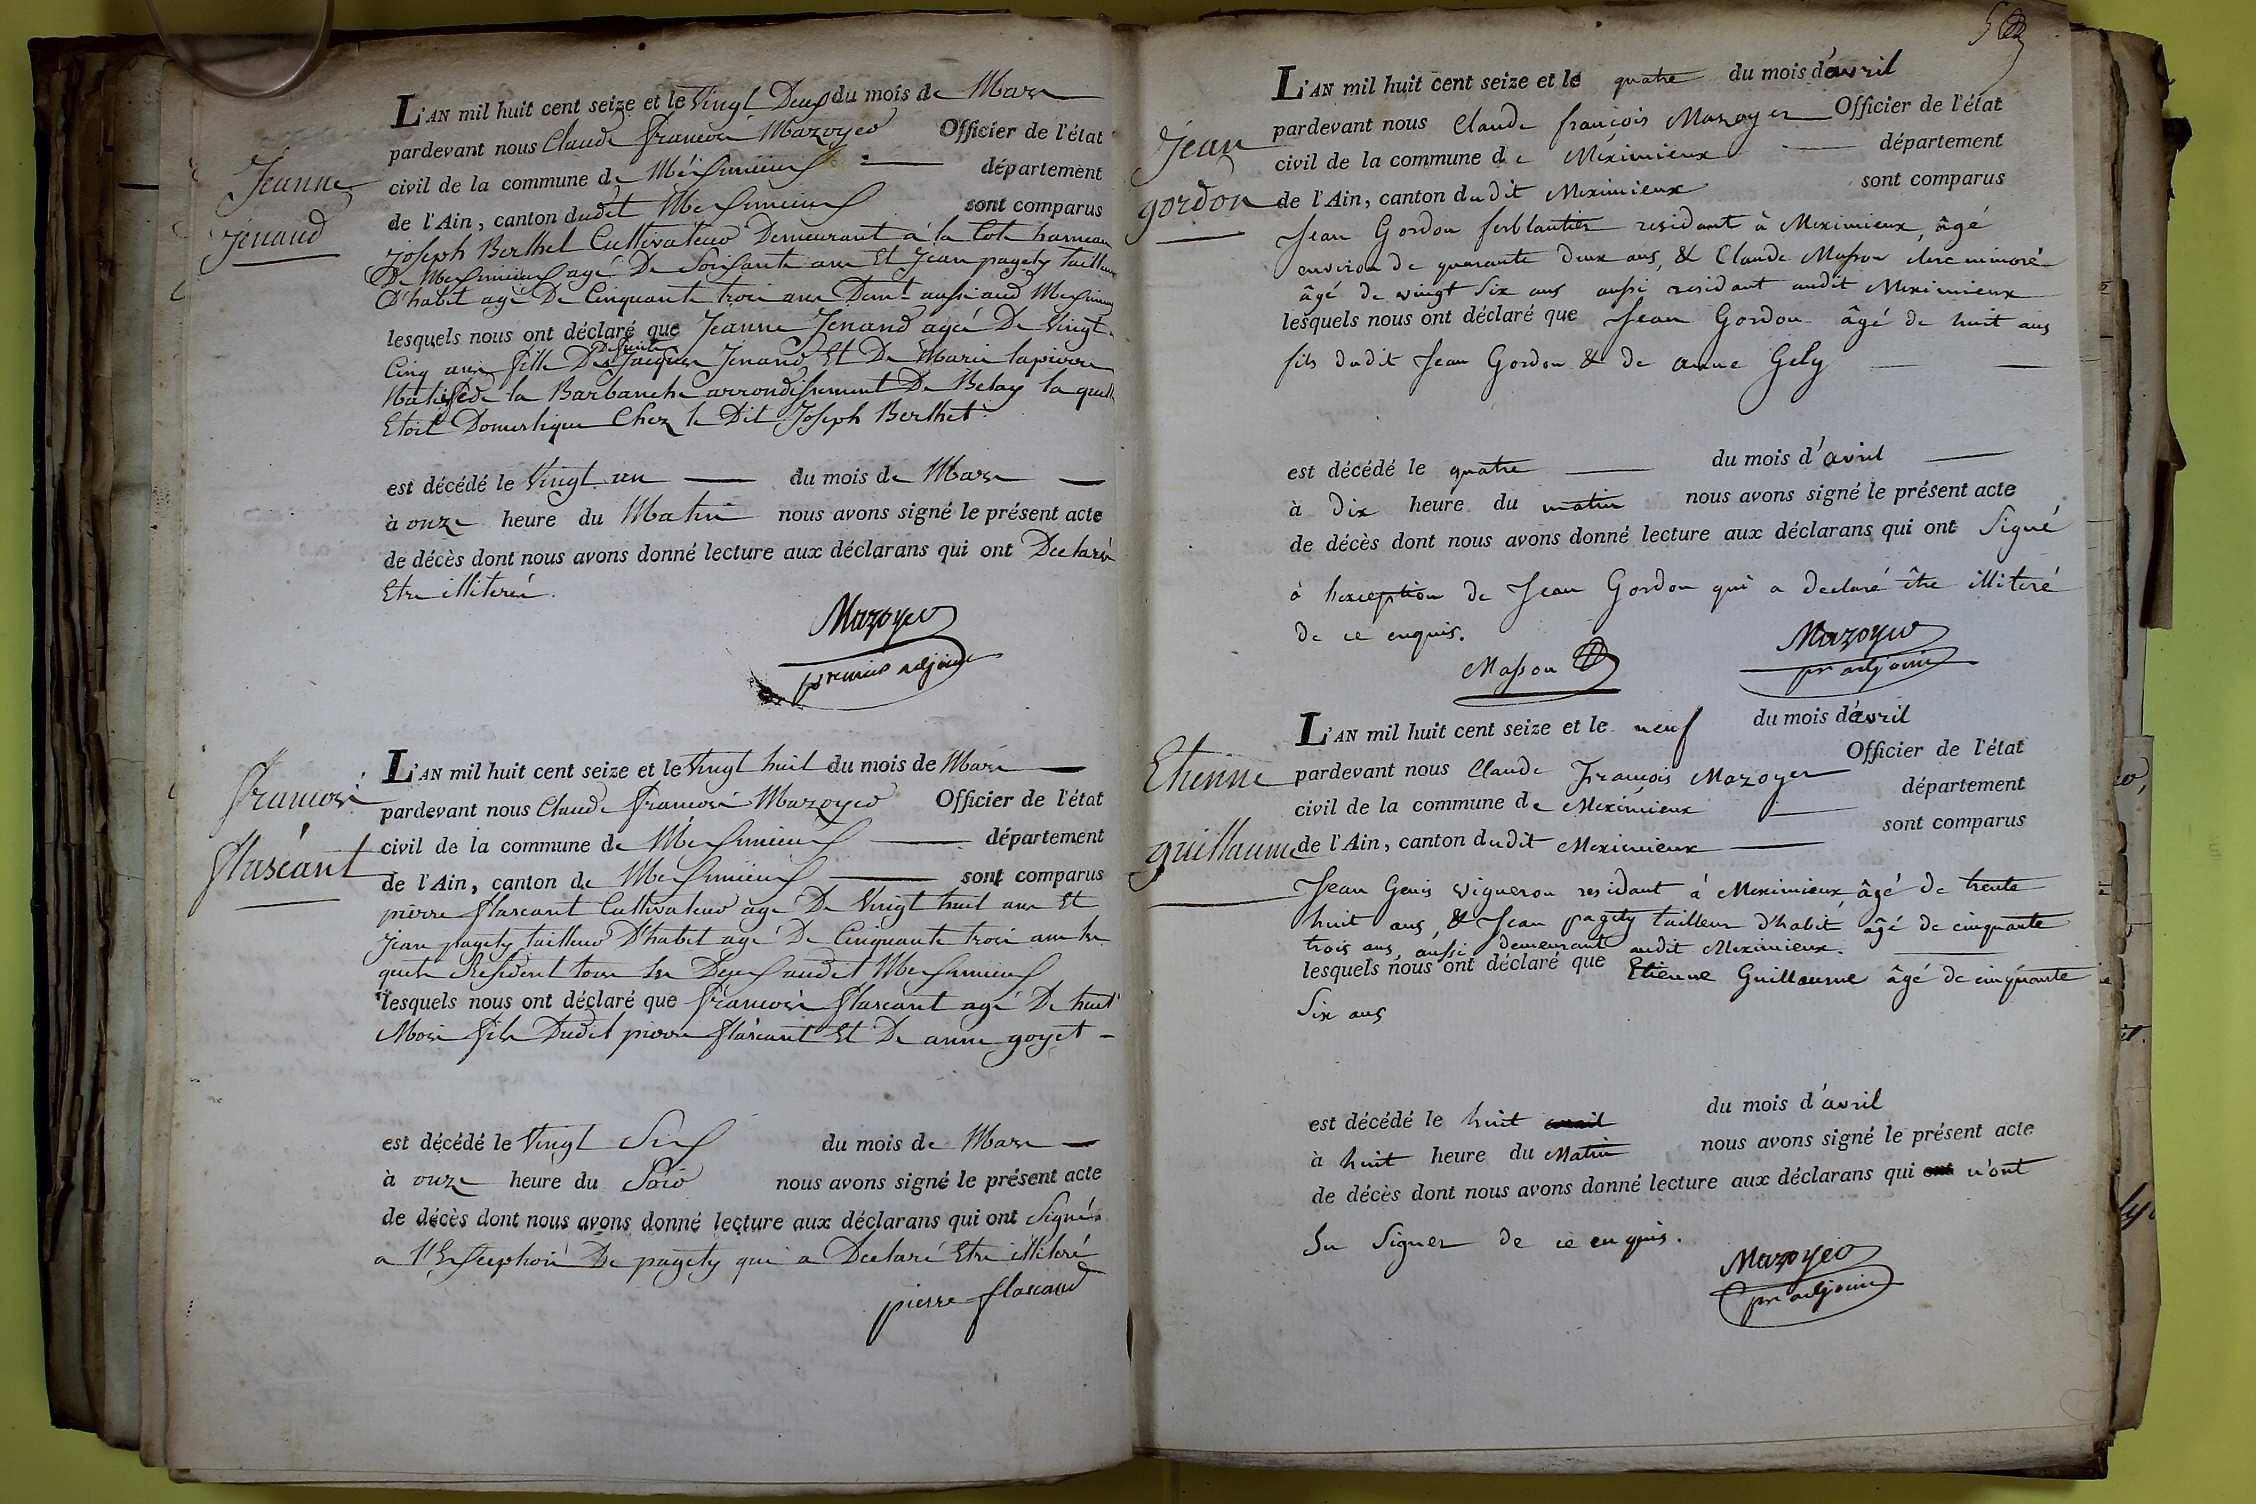 Jeanne
Jenand
L'AN mil huit cent seize et le Vingt Deux du mois de Mars
pardevant nous Claude francois Mazoyer Officier de l'état
civil de la commune de Meximieux département
de l'Ain, canton dudit Meximieux sont comparus
joseph Berthet Cultivateur Demeurant á la Cote hameau
De Meximieux agé De Soixante ans Et Jean pagety tailleur
D'habit agé De Cinquante trois ans Demt aussi aud Meximieux
lesquels nous ont déclaré que Jeanne Jenand agée De Vingt
Cinq ans fille De Defunt Jacques Jenand Et De Marie lapierre
Native de la Barbanche arrondissement De Belay la quelle
Etoit Domestique Chez le Dit Joseph Berthet
est décédé le Vingt un du mois de Mars
à onze heure du Matin nous avons signé le présent acte
de décès dont nous avons donné lecture aux déclarans qui ont Declaré
Etre illiteré.
Mazoyer
premier adjoint
francois
flascant
L'AN mil huit cent seize et le Vingt huit du mois de Mars
pardevant nous Claude francois Mazoyer Officier de l'état
civil de la commune de Meximieux département
de l'Ain, canton de Meximieux sont comparus
pierre flascant Cultivateur age De Vingt huit ans Et
Jean pagety tailleur D'habit agé De Cinquante trois ans les
quels Resident tous les Deux audit Meximieux
lesquels nous ont déclaré que francois flascant agé De huit
Mois fils Dudit pierre flascant Et De anne goyet
est décédé le Vingt Six du mois de Mars
à onze heure du Soir nous avons signé le présent acte
de décès dont nous avons donné lecture aux déclarans qui ont Signé
a l'Exception De pagety qui a Declaré Etre illiteré
pierre flascand
Jean
gordon
L'AN mil huit cent seize et le quatre du mois d'avril
pardevant nous Claude françois Mazoyer Officier de l'état
civil de la commune de Méximieux département
de l'Ain, canton dudit Meximieux sont comparus
Jean Gordon ferblantier residant à Meximieux, âgé
environ de quarante deux ans, & Claude Masson clerc minoré
âgé de vingt Six ans aussi residant audit Meximieux
lesquels nous ont déclaré que Jean Gordon âgé de huit ans
fils dudit Jean Gordon & de anne Gely
est décédé le quatre du mois d'avril
à dix heure du matin nous avons signé le présent acte
de décès dont nous avons donné lecture aux déclarans qui ont Signé
à l'exception de Jean Gordon qui a declaré être illiteré
de ce enquis.
Masson
Mazoyer
pr adjoint
Etienne
guillaume
L'AN mil huit cent seize et le neuf du mois d'avril
pardevant nous Claude François Mazoyer Officier de l'état
civil de la commune de Meximieux département
de l'Ain, canton dudit Meximieux sont comparus
Jean Genis vigneron residant á Meximieux, âgé de trente
huit ans, & Jean pagety tailleur d'habit âgé de cinquante
trois ans, aussi demeurant audit Meximieux.
lesquels nous ont déclaré que Etienne Guillaume âgé de cinquante
Six ans
est décédé le huit avril du mois d'avril
à huit heure du Matin nous avons signé le présent acte
de décès dont nous avons donné lecture aux déclarans qui ont n'ont
Su Signer de ce enquis.
Mazoyer
pr adjoint